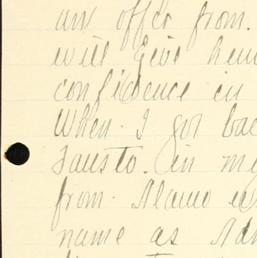 an offer from.
will give him
confidence in
When. I got bac
Fausto. in m
from. Alamo
name as Ad